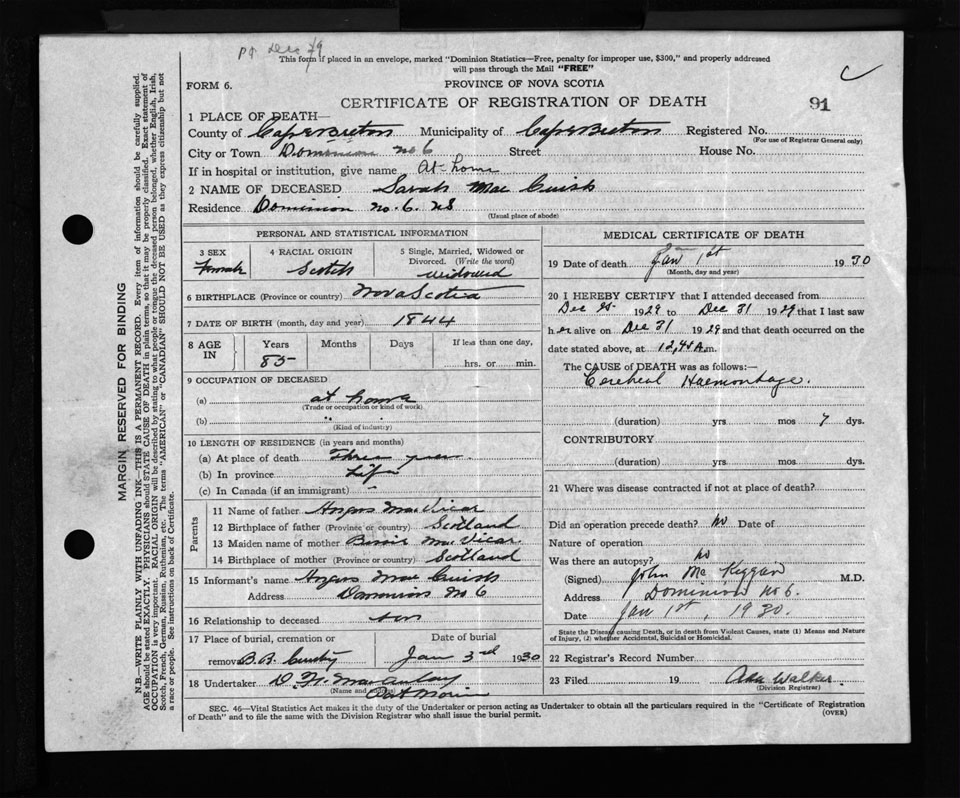 Pt Dec /29
This form if placed in an envelope, marked "Dominion Statistics—Free, penalty for improper use, $300," and properly addressed
will pass through the Mail "FREE"
C
FORM 6.
PROVINCE OF NOVA SCOTIA
CERTIFICATE OF REGISTRATION OF DEATH
91
1 PLACE OF DEATH—
County of Cape Breton Municipality of Cape Breton Registered No.
(For use of Registrar General only)
City or Town Dominion No 6 Street House No.
If in hospital or institution, give name At home
2 NAME OF DECEASED Sarah Mac Cuish
Residence Dominion No. 6. NS
(Usual place of abode)
PERSONAL AND STATISTICAL INFORMATION
3 SEX 4 RACIAL ORIGIN 5 Single, Married, Widowed or
Divorced. (Write the word)
Female Scotch widowed
6 BIRTHPLACE (Province or country) Nova Scotia
7 DATE OF BIRTH (month, day and year) 1844
8 AGE IN Years Months Days If less than one day,
85 hrs. or min.
9 OCCUPATION OF DECEASED
(a) at home
(Trade or occupation or kind of work)
(b) " "
(Kind of industry)
10 LENGTH OF RESIDENCE (in years and months)
(a) At place of death Three years
(b) In province Life
(c) In Canada (if an immigrant) -
Parents
11 Name of father Angus MacVicar
12 Birthplace of father (Province or country) Scotland
13 Maiden name of mother Bessie McVicar
14 Birthplace of mother (Province or country) Scotland
15 Informant's name Angus Mac Cuish
Address Dominion No 6
16 Relationship to deceased son
17 Place of burial, cremation or Date of burial
removal B.B. Jan 3rd 1930
18 Undertaker MacAulay
(Name and address) Port Morien
MEDICAL CERTIFICATE OF DEATH
19 Date of death Jan 1st 1930
(Month, day and year)
20 I HEREBY CERTIFY that I attended deceased from
Dec 25 1929 to Dec 31 1929 that I last saw
her alive on Dec 31 1929 and that death occurred on the
date stated above, at 12,45 A.m.
The CAUSE of DEATH was as follows:—
Cerebral Haemorrhage.
(duration) yrs mos 7 dys.
CONTRIBUTORY
(duration) yrs. mos. dys.
21 Where was disease contracted if not at place of death?
Did an operation precede death? No Date of
Nature of operation
Was there an autopsy? no
(Signed) John Mc Keggan M.D.
Address Dominion No 6.
Date Jan 1st, 1930.
State the Disease causing Death, or in death from Violent Causes, state (1) Means and Nature
of Injury, (2) whether Accidental, Suicidal or Homicidal.
22 Registrar's Record Number
23 Filed 19 Walker
(Division Registrar)
SEC. 46—Vital Statistics Act makes it the duty of the Undertaker or person acting as Undertaker to obtain all the particulars required in the "Certificate of Registration
of Death" and to file the same with the Division Registrar who shall issue the burial permit. (OVER)
MARGIN RESERVED FOR BINDING
N.B.—WRITE PLAINLY WITH UNFADING INK—THIS IS A PERMANENT RECORD. Every item of information should be carefully supplied.
AGE should be stated EXACTLY. PHYSICIANS should STATE CAUSE OF DEATH in plain terms, so that it may be properly classified. Exact statement of
OCCUPATION is very important. RACIAL ORIGIN will be described by stating to what people or tongue the deceased person belonged, whether English, Irish,
Scotch, French, German, Russian, Ruthenian, etc. The terms "AMERICAN" or "CANADIAN" SHOULD NOT BE USED as they express citizenship but not
a race or people. See instructions on back of Certificate.